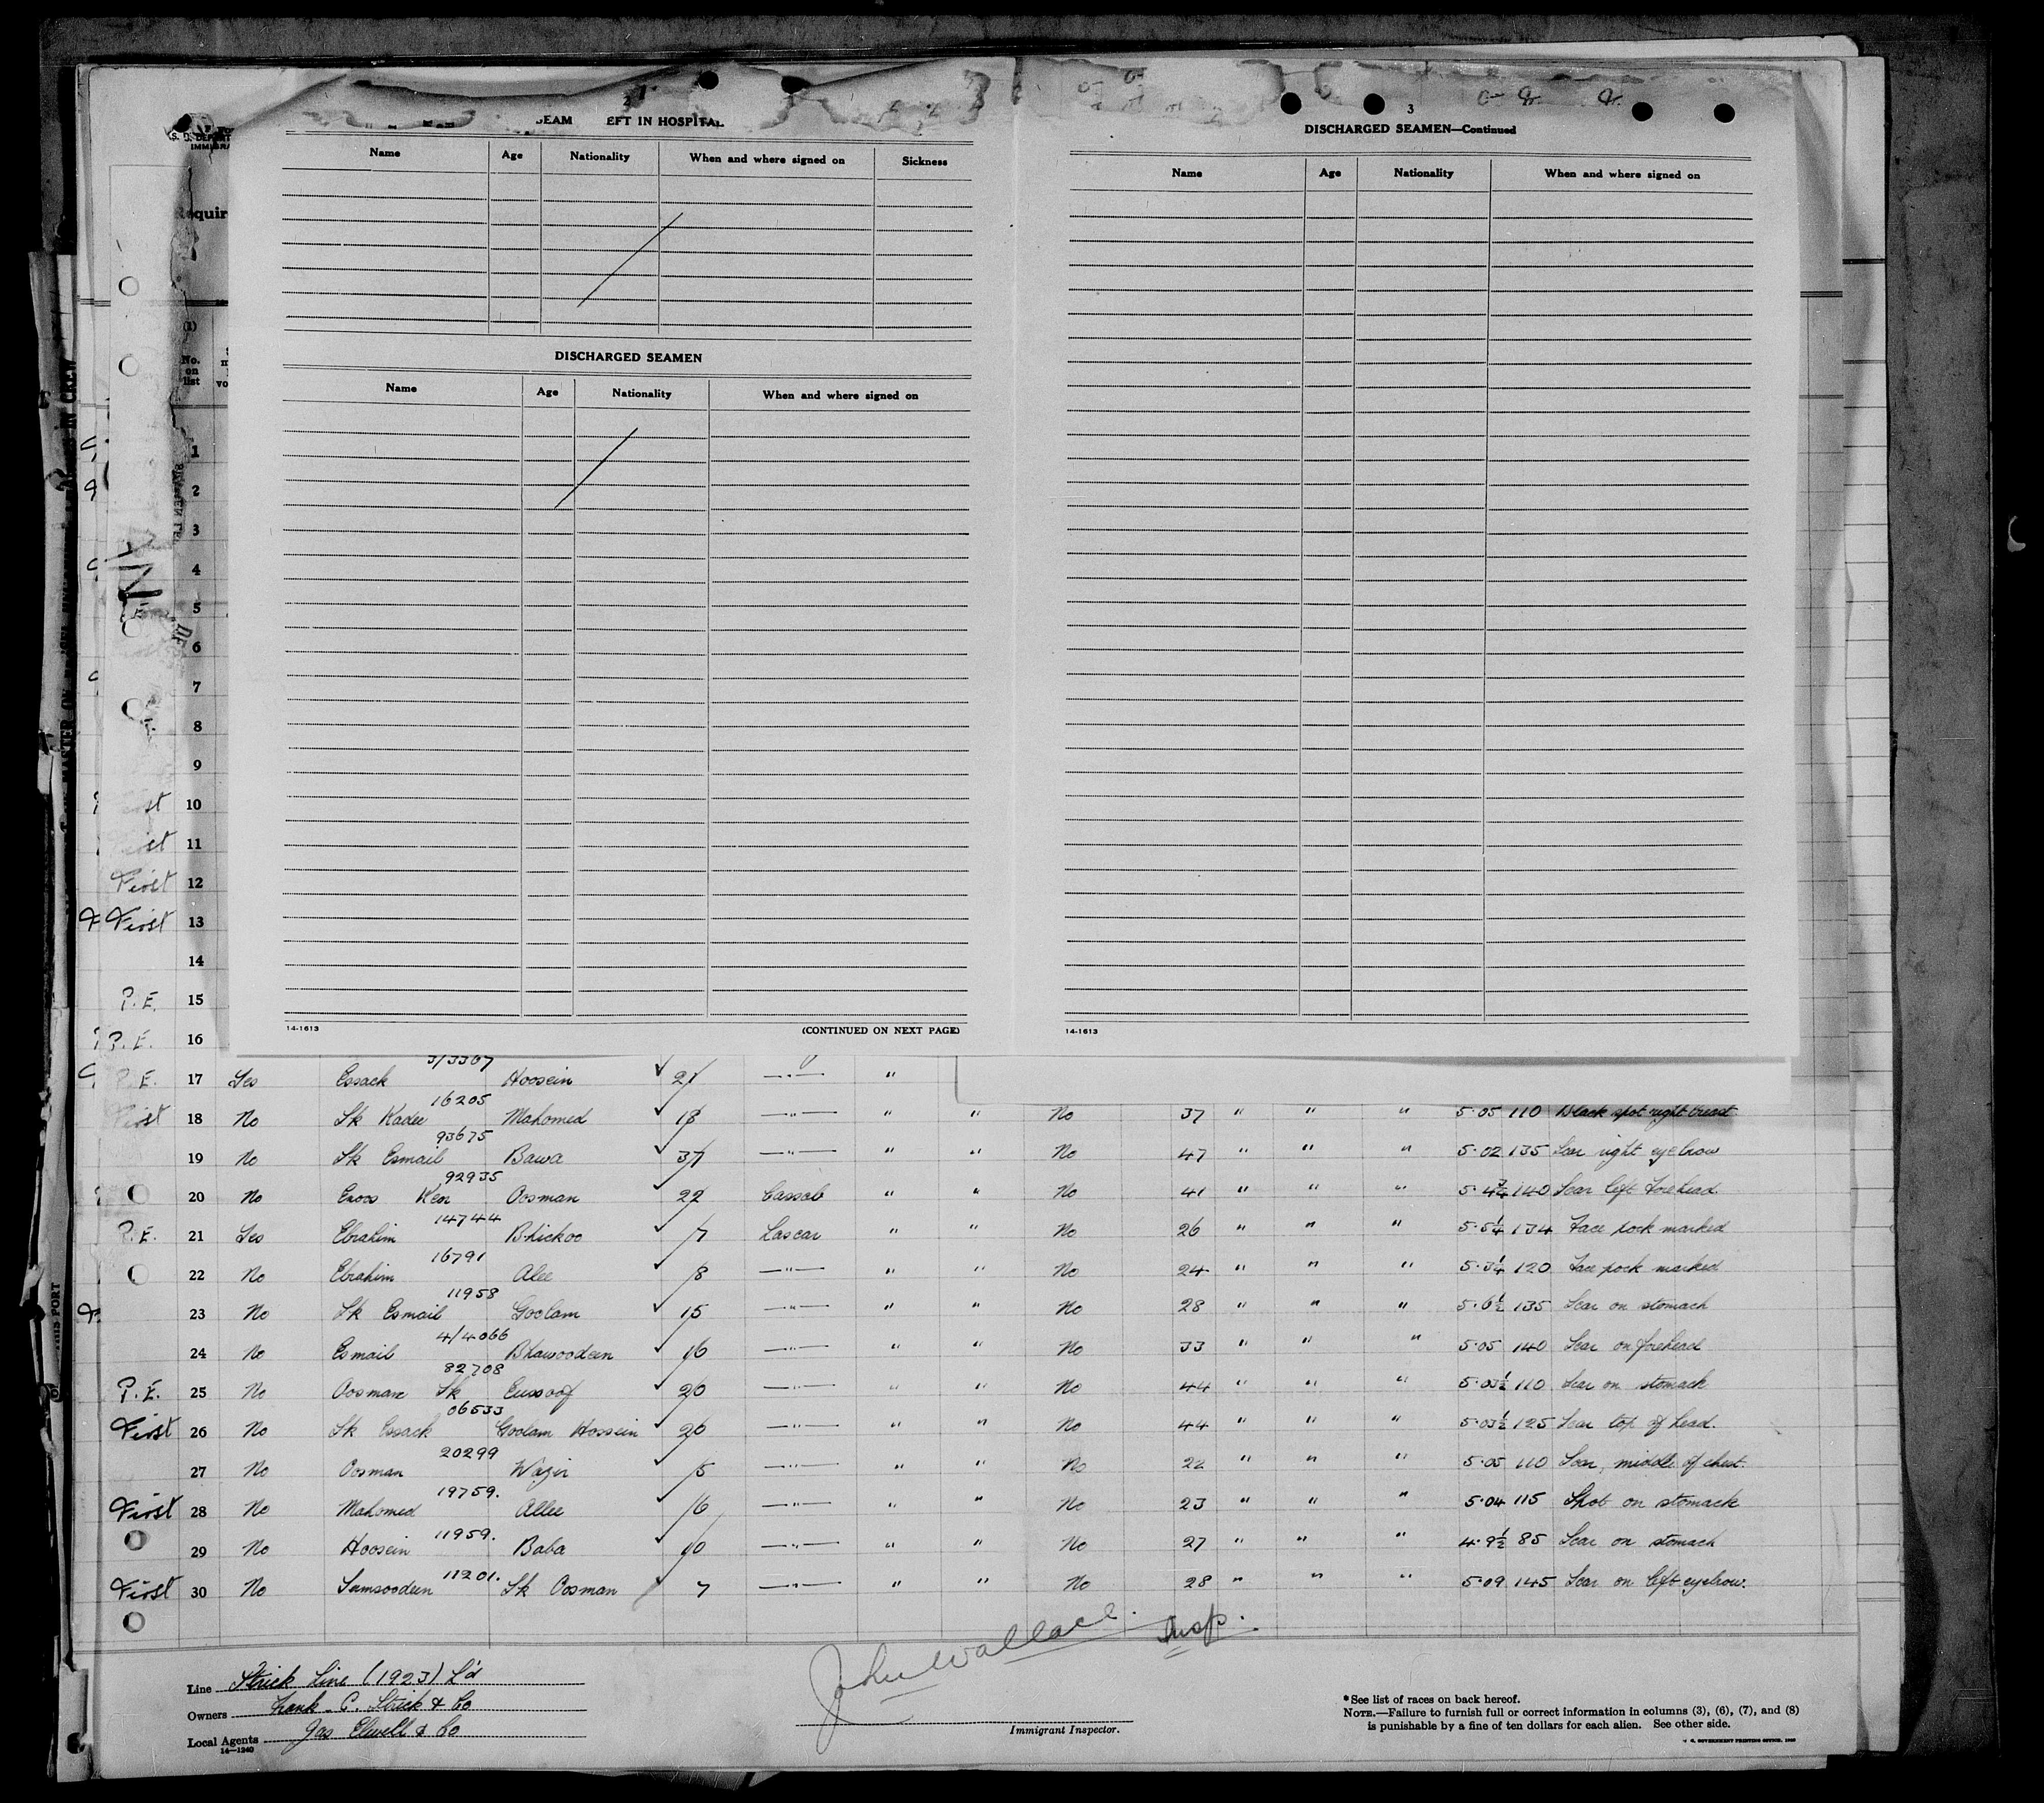 2
SEAM EFT IN HOSPITAL
Name Age Nationality When and where signed on Sickness
DISCHARGED SEAMEN
Name Age Nationality When and where signed on
14-1613 (CONTINUED ON NEXT PAGE)
3
DISCHARGED SEAMEN—Continued
Name Age Nationality When and where signed on
14-1613
Requir
(1)
No. on list
1
2
3
4
5
6
7
8
9
10
11
First 12
First 13
14
P.E. 15
P.E. 16
3/3367
P.E. 17 Yes Essack Hoosein ✓ 21 —"— "
16205
First 18 No Sk Kader Mahomed ✓ 18 —"— " " No 37 " " " 5.05 110 Black spot right breast
93675
19 No Sk Esmail Bawa ✓ 37 —"— " " No 47 " " " 5.02 135 Scar right eyebrow
92935
20 No Oosman ✓ 22 Cassab " " No 41 " " " 140 Scar left Forehead.
14744
P.E. 21 Yes Ebrahim Bhickoo ✓ 7 Lascar " " No 26 " " " 5.5¼ 134 Face pock marked
16791
22 No Ebrahim Alee ✓ 8 —"— " " No 24 " " " 5.3¼ 120 Face pock marked
11958
23 No Sk Esmail Goolam ✓ 15 —"— " " No 28 " " " 5.6½ 135 Scar on stomach
4/4066
24 No Esmail Bhawoodeen ✓ 16 —"— " " No 33 " " " 5.05 140 Scar on forehead
82708
P.E. 25 No Oosman Sk Eussoof ✓ 20 —"— " " No 44 " " " 5.03½ 110 Scar on stomach
06533
First 26 No Sk Essack Goolam Hossein ✓ 20 —"— " " No 44 " " " 5.03½ 125 Scar top of head.
20299
27 No Oosman Wazir ✓ 5 —"— " " No 22 " " " 5.05 110 Scar, middle of chest.
19759.
First 28 No Mahomed Allee ✓ 6 —"— " " No 23 " " " 5.04 115 Shot on stomach
11959.
29 No Hoosein Baba ✓ 10 —"— " " No 27 " " " 4.9½ 85 Scar on stomach
11201.
First 30 No Sumsoodeen Sk Oosman 7 —"— " " No 28 " " " 5.09 145 Scar on left eyebrow.
John Wallace. Insp.
Immigrant Inspector.
Line Strick Line (1923) Ld
Owners Frank C. Strick & Co
Local Agents Jas Elwell & Co
14—1240
*See list of races on back hereof.
NOTE.—Failure to furnish full or correct information in columns (3), (6), (7), and (8)
is punishable by a fine of ten dollars for each alien. See other side.